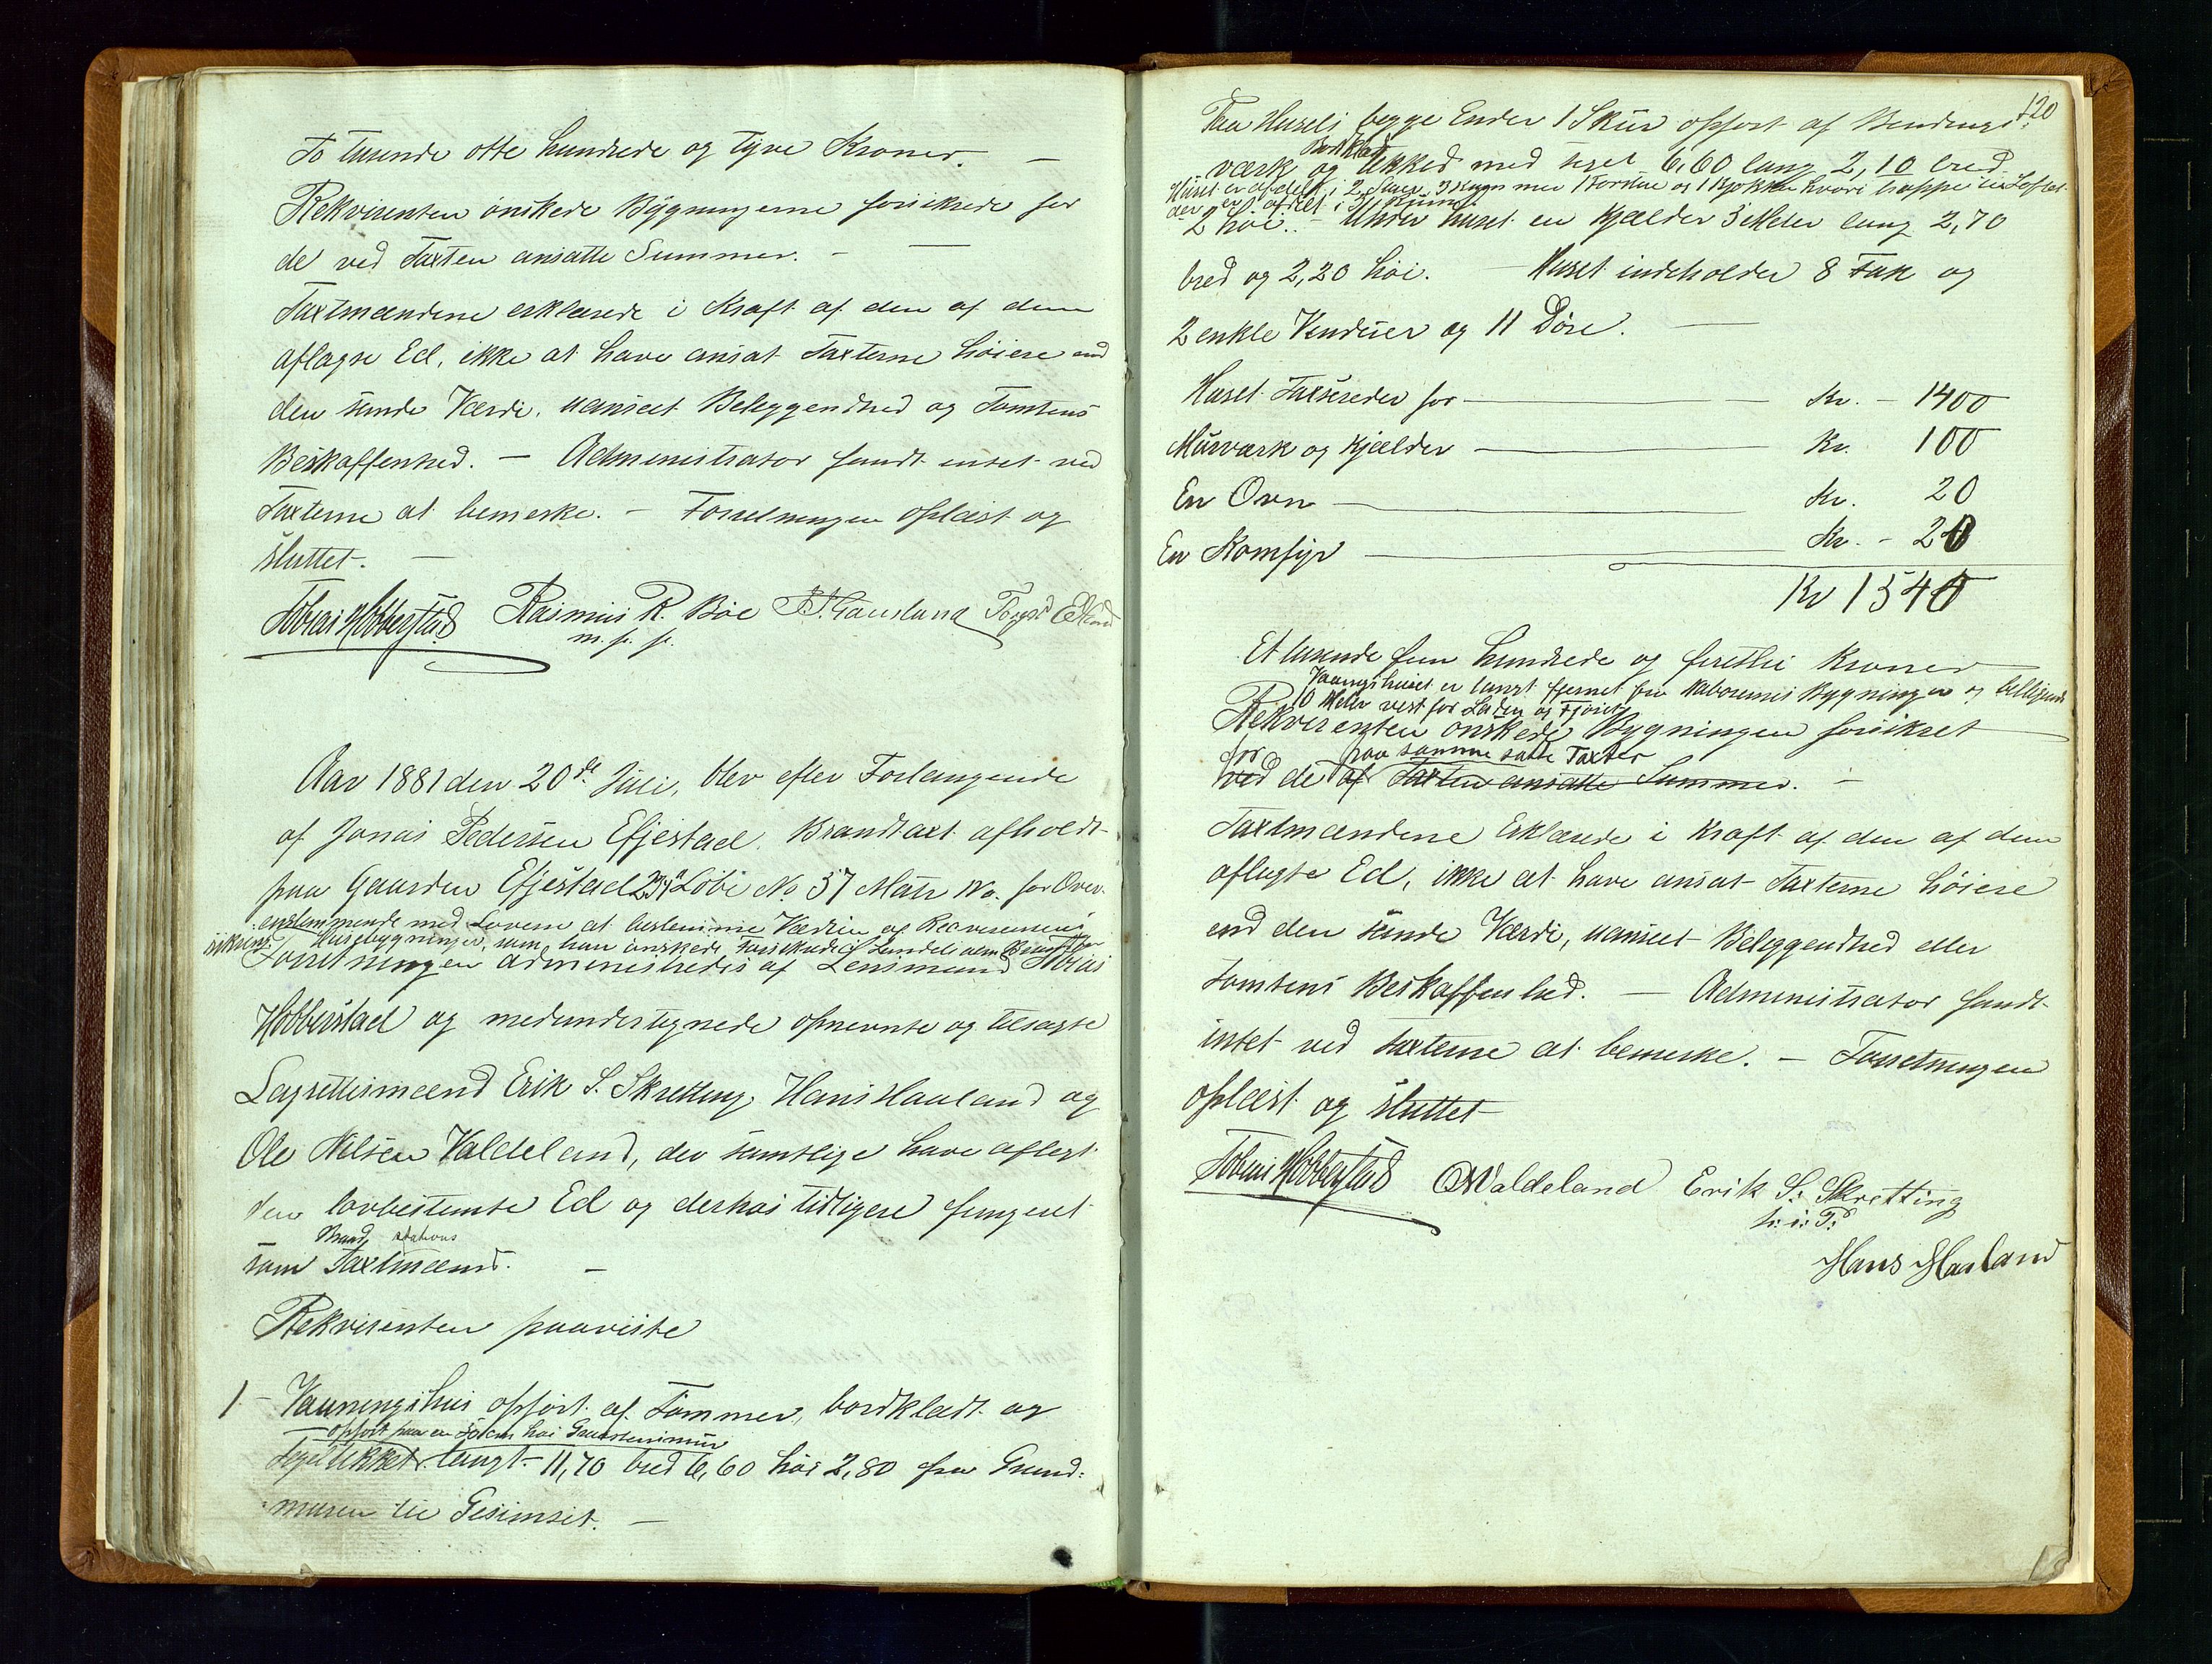 To tusende otte hundrede og tyve Kroner. —
Rekvirenten önskede Bygningerne forsikrede for
de ved Taxten ansatte Summer. — —
Taxtmændene erklærede i Kraft af den af dem
aflagte Ed, ikke at have ansat Taxterne höiere end
den sande Værdi, uanseet Beleggenhed og Tomtens
Beskaffenhed. — Administrator fandt intet ved
Taxterne at bemerke. — Forretningen oplæst og
sluttet. —
Tobias Hobberstad Rasmus R. Böe
m. f. p.
Aar 1881 den 20de Juli, blev efter Forlangende
af Jonas Pedersen Efjestad. Brandtaxt afholdt
paa Gaarden Efjestad Löbe No 57 Matr No. for Over-
ensstemmende med Lovene at bestemme Værdien af Reqvirentens
Husebygninger, som han önskede forsikrede i Landets alm. Brandfor-
sikring.
Forretningen administredes af Lensmand Tobias
Hobberstad og medundertegnede opnevnte og tilsagte
Lagrettesmænd Erik S. Skretting, Hans Haaland og
Ole Nilsen Valdeland, der samtlige have aflagt
den lovbestemte Ed og derhos tidligere fungeret
Brand stations
som Taxtmænd. —
Rekvirenten paaviste
1 — Vaaningshus opfört af Tömmer, bordklædt og
opfört paa en höi Graastensmur
Tegltækket langt 11,70 bred 6,60 höi 2,80 fra Grund-
muren til Gesimset. —
120
Paa Husets begge Ender 1 Skur opfört af Bindings-
Bordklædt
værk og tækked med 6,60 lang 2,10 bred
Huset er afdelt i 2 Stuer, 1 Forstue og 1 Kjökken hvori Trappe til Loftet
der er afdelt i 3 Rum.
2 höi. — Under huset en Kjælder 3 Meter lang 2,70
bred og 2,20 höi. — Huset indeholder 8 Fak og
2 enkle Vinduer og 11 Döre. —
Huset Taxseredes for — Kr. — 1400
Murværk og Kjælder — Kr. 100
En Ovn — Kr. 20
En Komfyr — Kr. — 20
Kr 1540
Et tusende fem hundrede og företti Kroner
Vaaningshuset er langt fjernet fra Naboernes Bygninger og beliggende
10 Meter vest for Laden og Fjöset
Rekvirenten önskede Bygningen forsikret
for paa samme satte Taxter
ved de af Taxten ansatte Summer. —
Taxtmændene Erklærede i Kraft af den af dem
aflagte Ed, ikke at have ansat Taxterne höiere
end den sande Værdi, uanseet Beleggenhed eller
Tomtens Beskaffenhed. — Administrator fandt
intet ved taxterne at bemerke. — Forretningen
oplæst og sluttet
Tobias Hobberstad ONValdeland Erik S: Skretting
Hans Haaland